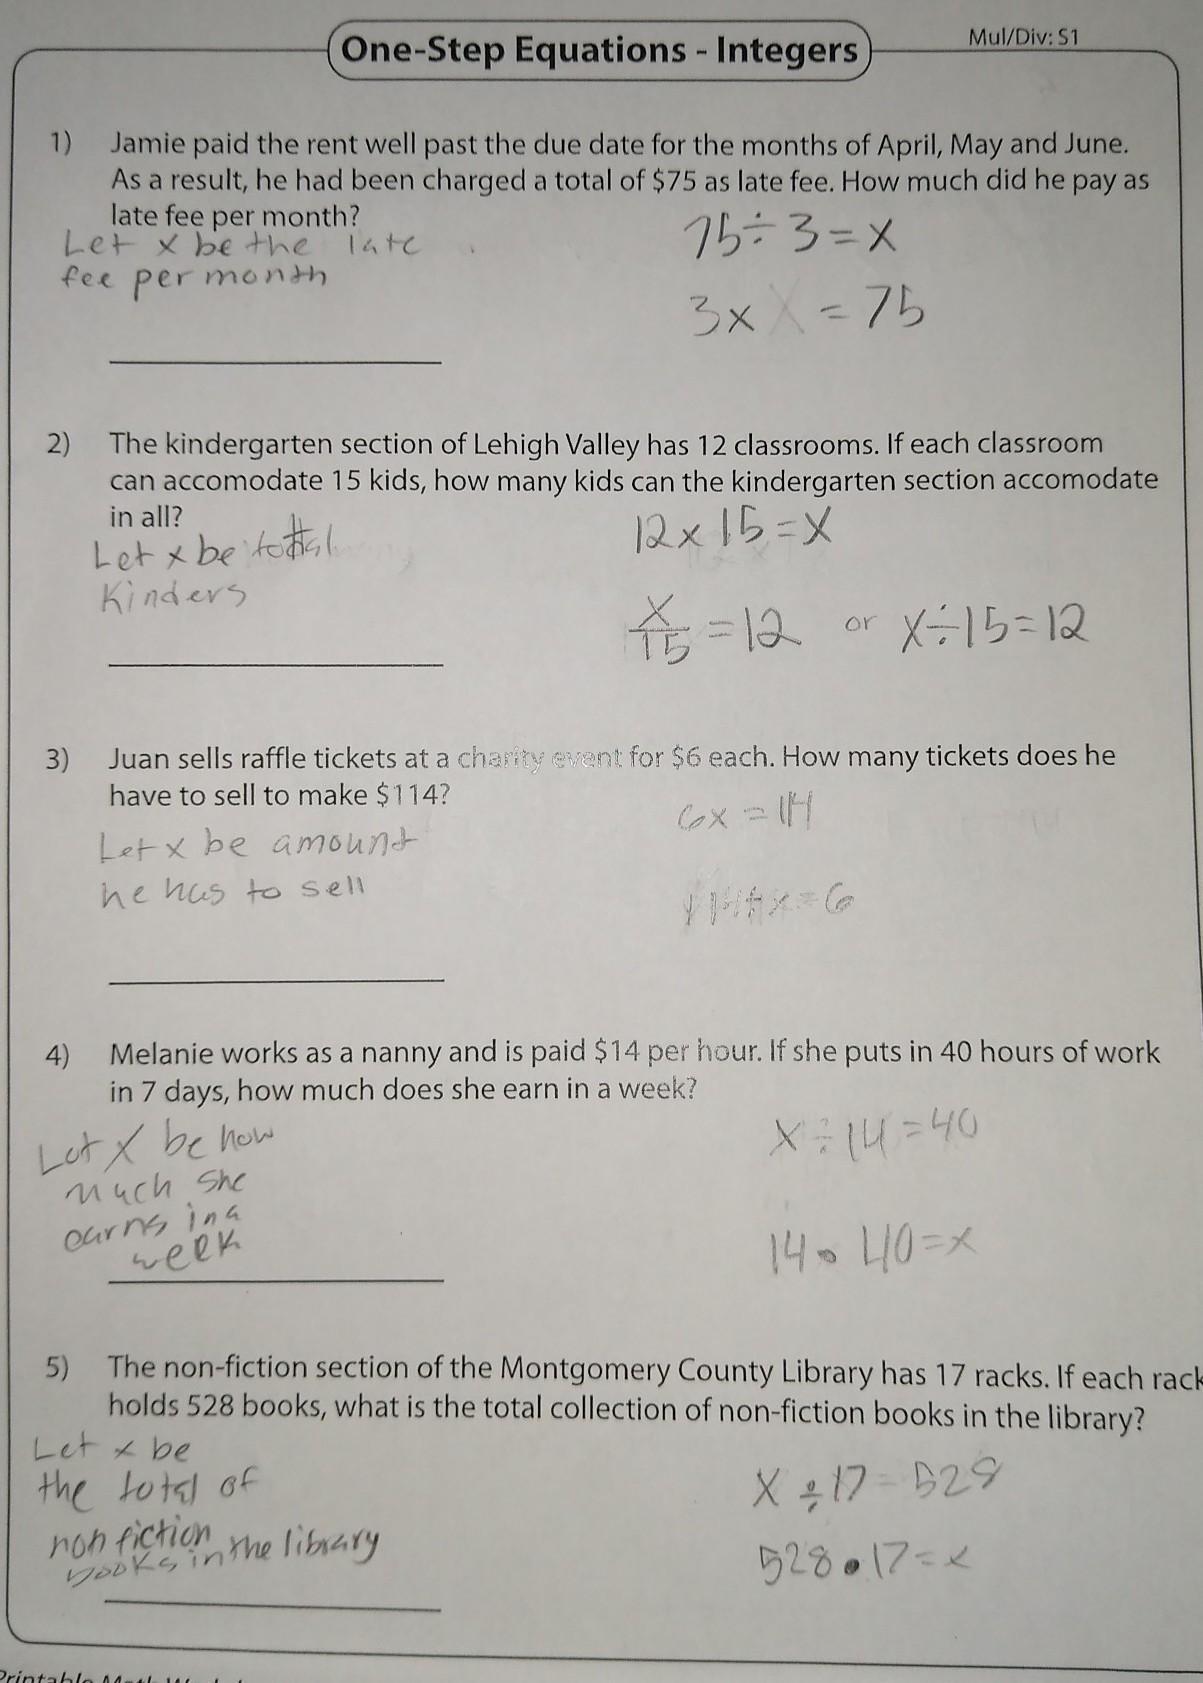 One-Step Equations - Integers
Mul/Div: S1
1) Jamie paid the rent well past the due date for the months of April, May and June.
As a result, he had been charged a total of $75 as late fee. How much did he pay as
late fee per month?
Let x be the late
fee per month
75÷3=x
3x X = 75
2) The kindergarten section of Lehigh Valley has 12 classrooms. If each classroom
can accomodate 15 kids, how many kids can the kindergarten section accomodate
in all?
Let x be total
Kinders
12x15=x
x/15 = 12 or x÷15=12
3) Juan sells raffle tickets at a charity event for $6 each. How many tickets does he
have to sell to make $114?
Let x be amount
he has to sell
6x = 114
114÷x=6
4) Melanie works as a nanny and is paid $14 per hour. If she puts in 40 hours of work
in 7 days, how much does she earn in a week?
Let X be how
much she
earns in a
week
x÷14=40
14•40=x
5) The non-fiction section of the Montgomery County Library has 17 racks. If each rack
holds 528 books, what is the total collection of non-fiction books in the library?
Let x be
the total of
non fiction
books in the library
X÷17=528
528•17=x